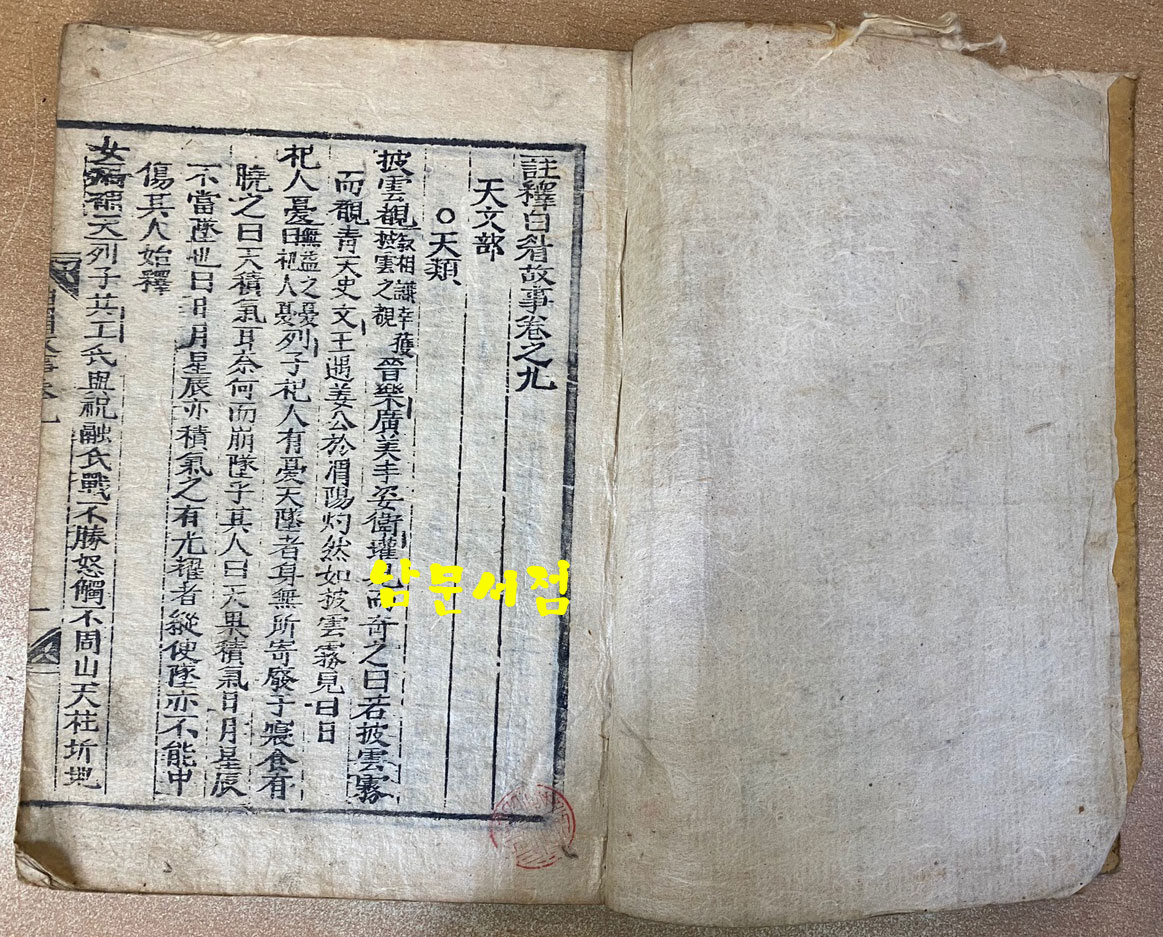 註釋白眉故事卷之九
天文部
○天類
披雲覩 叙相識幸獲披雲之覩 晉樂廣美丰姿衛瓘見而奇之曰若披雲霧
而覩青天史文王遇姜公於渭陽灼然如披雲霧見白日
杞人憂 無益之憂曰杞人憂 列子杞人有憂天墜者身無所寄廢于寢食有
曉之曰天積氣耳奈何而崩墜乎其人曰天果積氣日月星辰
不當墜也曰日月星辰亦積氣之有光耀者縱使墜亦不能中
傷其人始釋
女媧補天列子共工氏與祝融氏戰不勝怒觸不周山天柱折地
남문서점